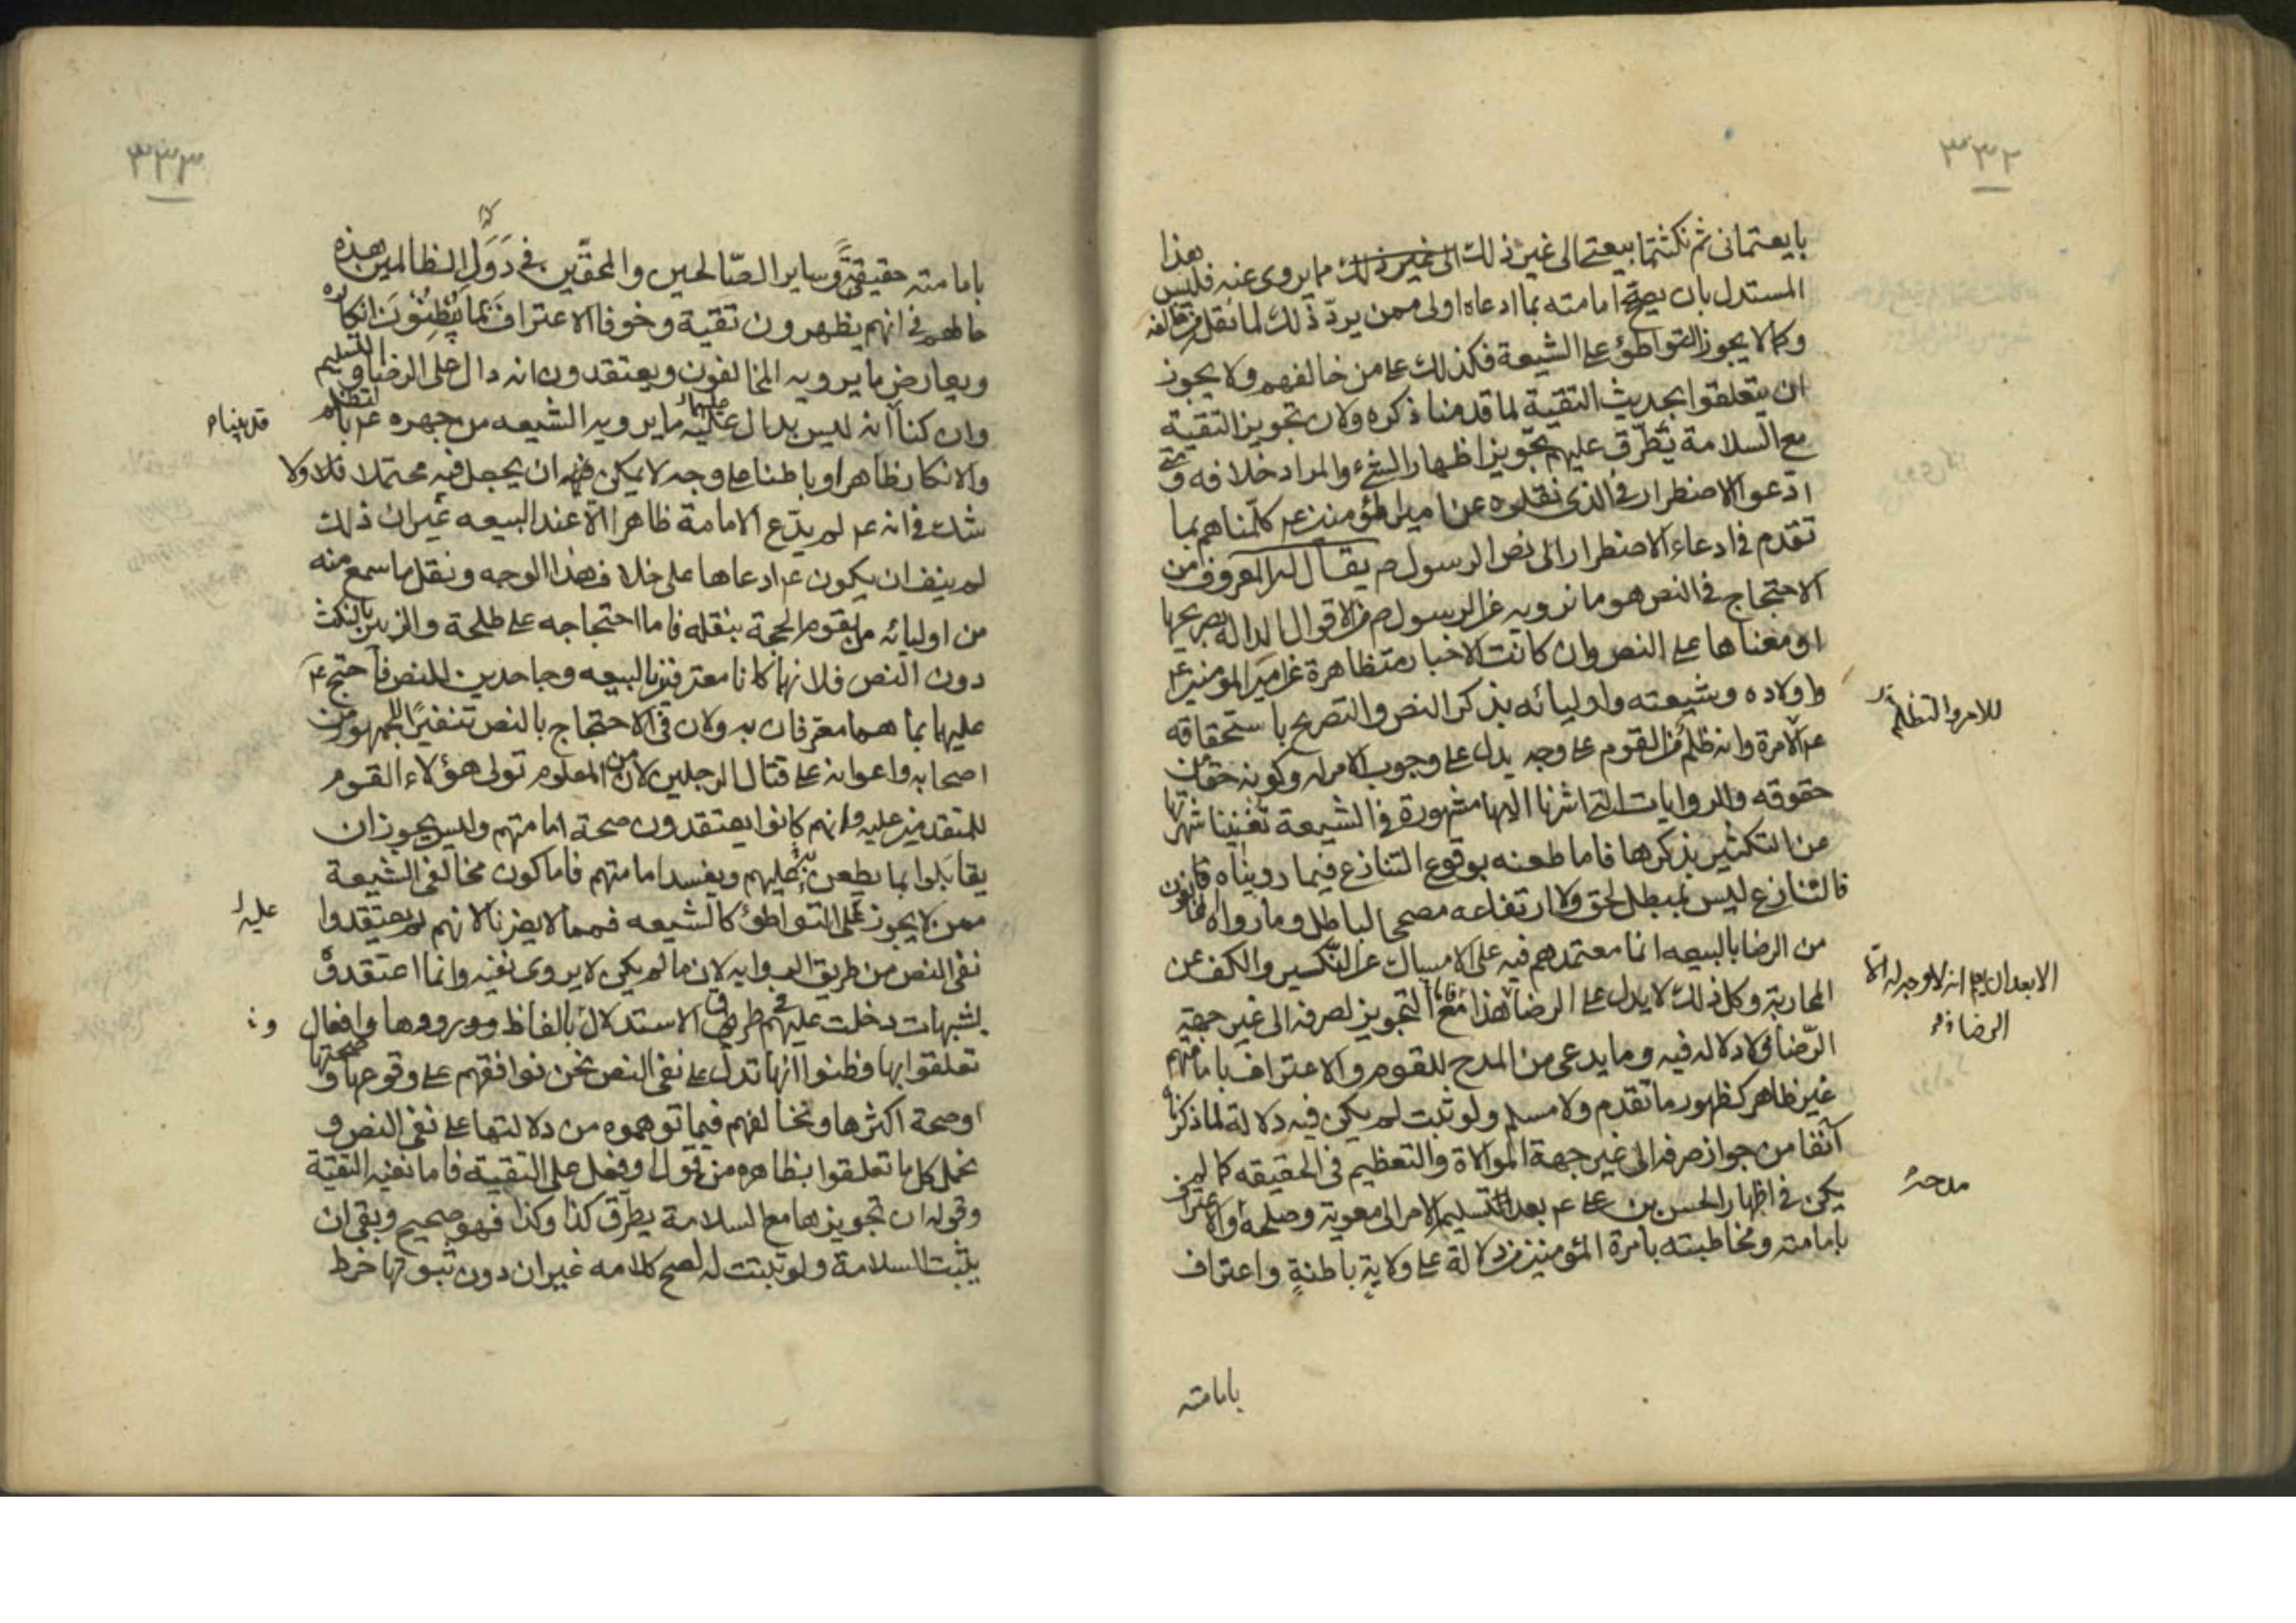 ٣٣٢
بايعتمانى ثم نكثتما بيعتى الى غير ذلك الى غير ذلك مما يروى عنه فليس هذا
المستدل بان يصحح امامته بما ادعاه اولى ممن يردّ ذلك لما نقل من مخالفه
وكما لا يجوز التواطؤ على الشيعة فكذلك على من خالفهم ولا يجوز
ان يتعلقوا بحديث التقية لما قدمنا ذكره ولان تجويز التقية
مع السلامة يطرّق عليهم تجويز اظهار الشىء والمراد خلافه ومتى
ادّعوا الاضطرار فى الذى نقلوه عن امير المؤمنين ع م كلّمناهم بما
تقدم فى ادعاء الاضطرار الى نص الرسول ص يقال له المعروف من
الاحتجاج فى النص هو ما نرويه عن الرسول ص من الاقوال الدالة بصريحها
او معناها على النص وان كانت الاخبار متظاهرة عن امير المؤمنين ع م
واولاده وشيعته واوليائه بذكر النص والتصريح باستحقاقه
للامر والتظلم
ع م الامرة وانه ظلم من القوم على وجه يدل على وجوب الامر له وكونه حقا من
حقوقه والروايات التى اشرنا اليها مشهورة فى الشيعة تغنينا شهرتها
من التكثير بذكرها فاما طعنه بوقوع التنازع فيما رويناه قانون
فالتنازع ليس بمبطل لحق ولا ارتفاعه مصححا لباطل وما رواه مخالفونا
من الرضا بالبيعه انما معتمدهم فيه على الامساك عن النكير والكف عن
المحاربة وكل ذلك لا يدل على الرضا هذا مع التجويز لصرفه الى غير جهة
الابعد ان يعلم انه لا وجه له الا
الرضا
الرّضا ولا دلاله فيه وما يدعى من المدح للقوم والاعتراف بامامتهم
غير ظاهر كظهور ما تقدم ولا مسلم ولو ثبت لم يكن فيه دلالة لما ذكرناه
آنفا من جواز صرفه الى غير جهة الموالاة والتعظيم فى الحقيقه كما لم
يكن فى اظهار الحسن بن على ع م بعد التسليم الامر الى معوية وصلحه والاعتراف
مدحه
بامامته ومخاطبته بامرة المؤمنين من دلالة على ولاية باطنةٍ واعتراف
بامامته
٣٣٣
بامامته حقيقةً وساير الصّالحين والمحقّين فى دَوَلِ الظالمين هذه
حالهم فى انهم يظهرون تقية وخوفا الاعتراف بما يبطنون انكاره
ويعارض ما يرويه المخالفون ويعتقدون انه دال على الرضا والتسليم
وان كنا انه ليس بدال عليه ما يرويه الشيعه من جهره ع م بالتظلم
قد بيناه
والانكار ظاهرا وباطنا على وجه لا يمكن فيه ان يجعل فيه محتملا فلا ولا
شك فى انه ع م لم يدّع الامامة ظاهرا الا عند البيعه غير ان ذلك
لم ينف ان يكون ع م ادعاها على خلاف هذا الوجه ونقل ما سمع منه
من اوليائه من يقوم الحجة بنقله فاما احتجاجه على طلحة والزبير بالنكث
دون النص فلانهما كانا معترفين بالبيعه وجاحدين للنص فاحتج ع م
عليهما بما هما معترفان به ولان فى الاحتجاج بالنص تنفيرًا لجمهور من
اصحابه واعوانه على قتال الرجلين لان من المعلوم تولى هؤلاء القوم
للمتقدمين عليه وانهم كانوا يعتقدون صحة امامتهم وليس يجوز ان
يقابلوا بما يطعن به عليهم ويفسد امامتهم فاما كون مخالفى الشيعة
ممن لا يجوز على التواطؤ كالشيعه فمما لا يضرنا لانهم لم يعتقدوا
عليه
نفى النص من طريق الروايه لان ما لم يكن لا يروى نفيه وانما اعتقدوه
لشبهات دخلت عليهم فى طريق الاستدلال بالفاظ ورووها وافعال
و
تعلقوا بها فظنوا انها تدل على نفى النص نحن نوافقهم على وقوعها وصحتها
او صحة اكثرها ونخالفهم فيما توهموه من دلالتها على نفى النص و
نحمل كل ما تعلقوا بظاهره من قول او فعل على التقية فاما نفيه التقية
وقوله ان تجويزها مع السلامة يطرّق كذا وكذا فهو صحيح وبقى ان
يثبت السلامة ولو ثبتت له لصح كلامه غير ان دون ثبوتها خرط